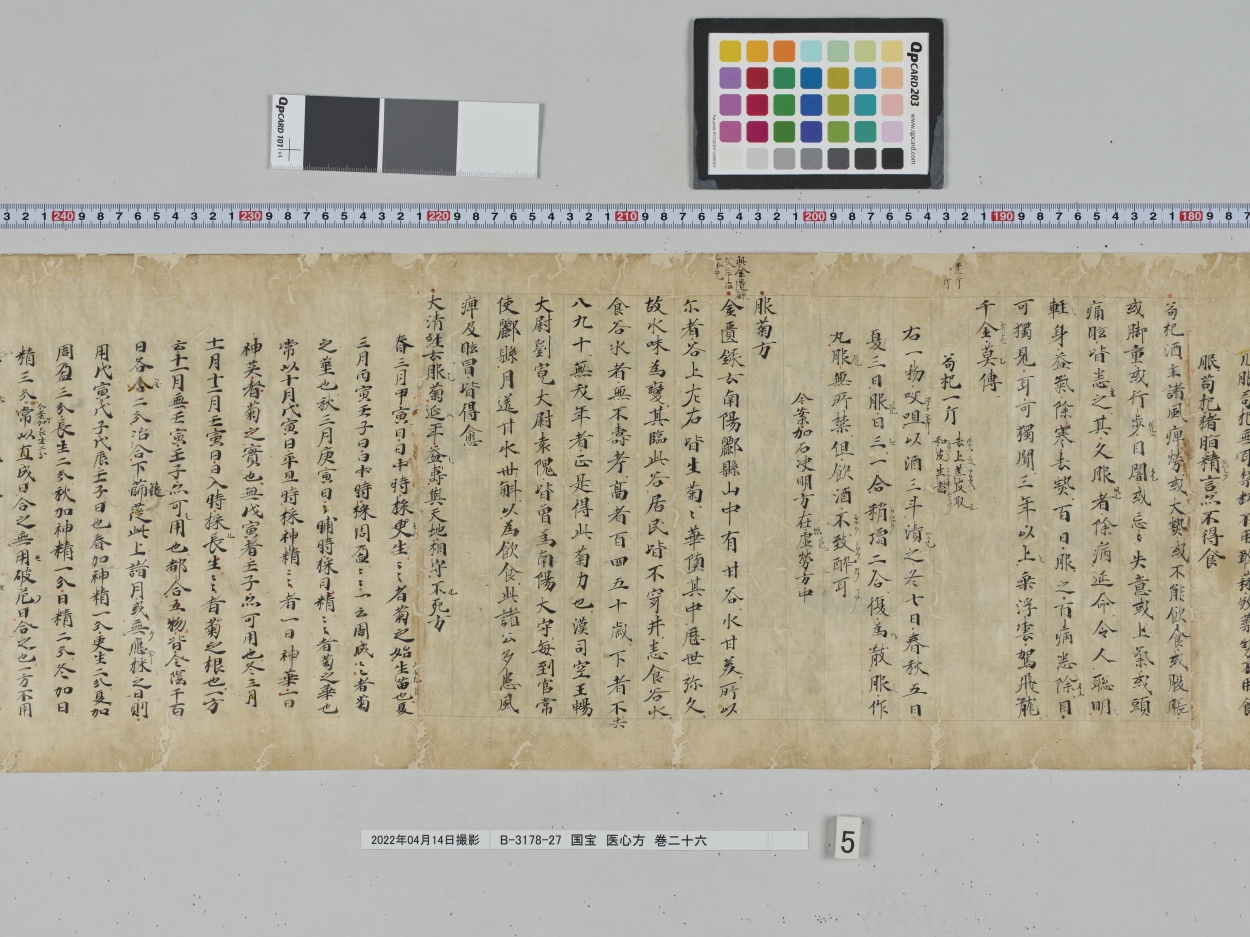 QPCARD 101 v4
QPCARD 203 www.qpcard.com
3 2 1 240 9 8 7 6 5 4 3 2 1 230 9 8 7 6 5 4 3 2 1 220 9 8 7 6 5 4 3 2 1 210 9 8 7 6 5 4 3 2 1 200 9 8 7 6 5 4 3 2 1 190 9 8 7 6 5 4 3 2 1 180 9 8 7
服苟杞猪脂精言不得食
苟杞酒主諸風痺勞或大熱或不能飲食或脹脹
或脚重或行步目闇或忘〻失意或上氣或頭
痛眩皆悉主之其久服者除病延命令人聡明
軽身益氣除寒去熱百日服之百病悉除目
可獨見耳可獨聞三年以上乗浮雲駕飛龍
千金莫傳
苟杞一斤
右一物㕮咀以酒三斗漬之冬七日春秋五日
夏三日服日三一合稍増二合復為散服作
丸服無所禁但飲酒不致酔耳
今案加石決明方在虚勞方中
服菊方
金匱録云南陽酈縣山中有甘谷水甘美所以
尓者谷上左右皆生菊〻華墮其中歴世弥久
故水味為變其臨此谷居民皆不穿井悉食谷水
食谷水者無不壽考高者百四五十歳下者不失
八九十無夭年者正是得此菊力也漢司空王暢
大尉劉寛大尉袁隗皆曽為南陽大守毎到官常
使酈縣月送甘水卌斛以為飲食此諸公多患風
痺及眩冒皆得愈
大清経云服菊延年益壽與天地相守不死方
春三月甲寅日日中時採更生〻〻者菊之始生苗也夏
三月丙寅壬子日日中時採周盈〻〻一云周成〻〻者菊
之葉也秋三月庚寅日〻晡時採日精〻〻者菊之華也
常以十月戊寅日平旦時採神精〻〻者一曰神華一曰
神英者菊之實也無戊寅者壬子亦可用也冬三月
十一月十二月壬寅日日入時採長生〻〻者菊之根也一方
云十一月無壬寅壬子亦可用也都合五物皆令陰干百
日各令二分治合下篩
用戊寅戊子戊辰壬子日也春加神精一分更生二分夏加
周盈三分長生二分秋加神精一分日精二分冬加日
精三分常以直成日合之無用破危日合之也一方不用
2022年04月14日撮影 B-3178-27 国宝 医心方 巻二十六
5